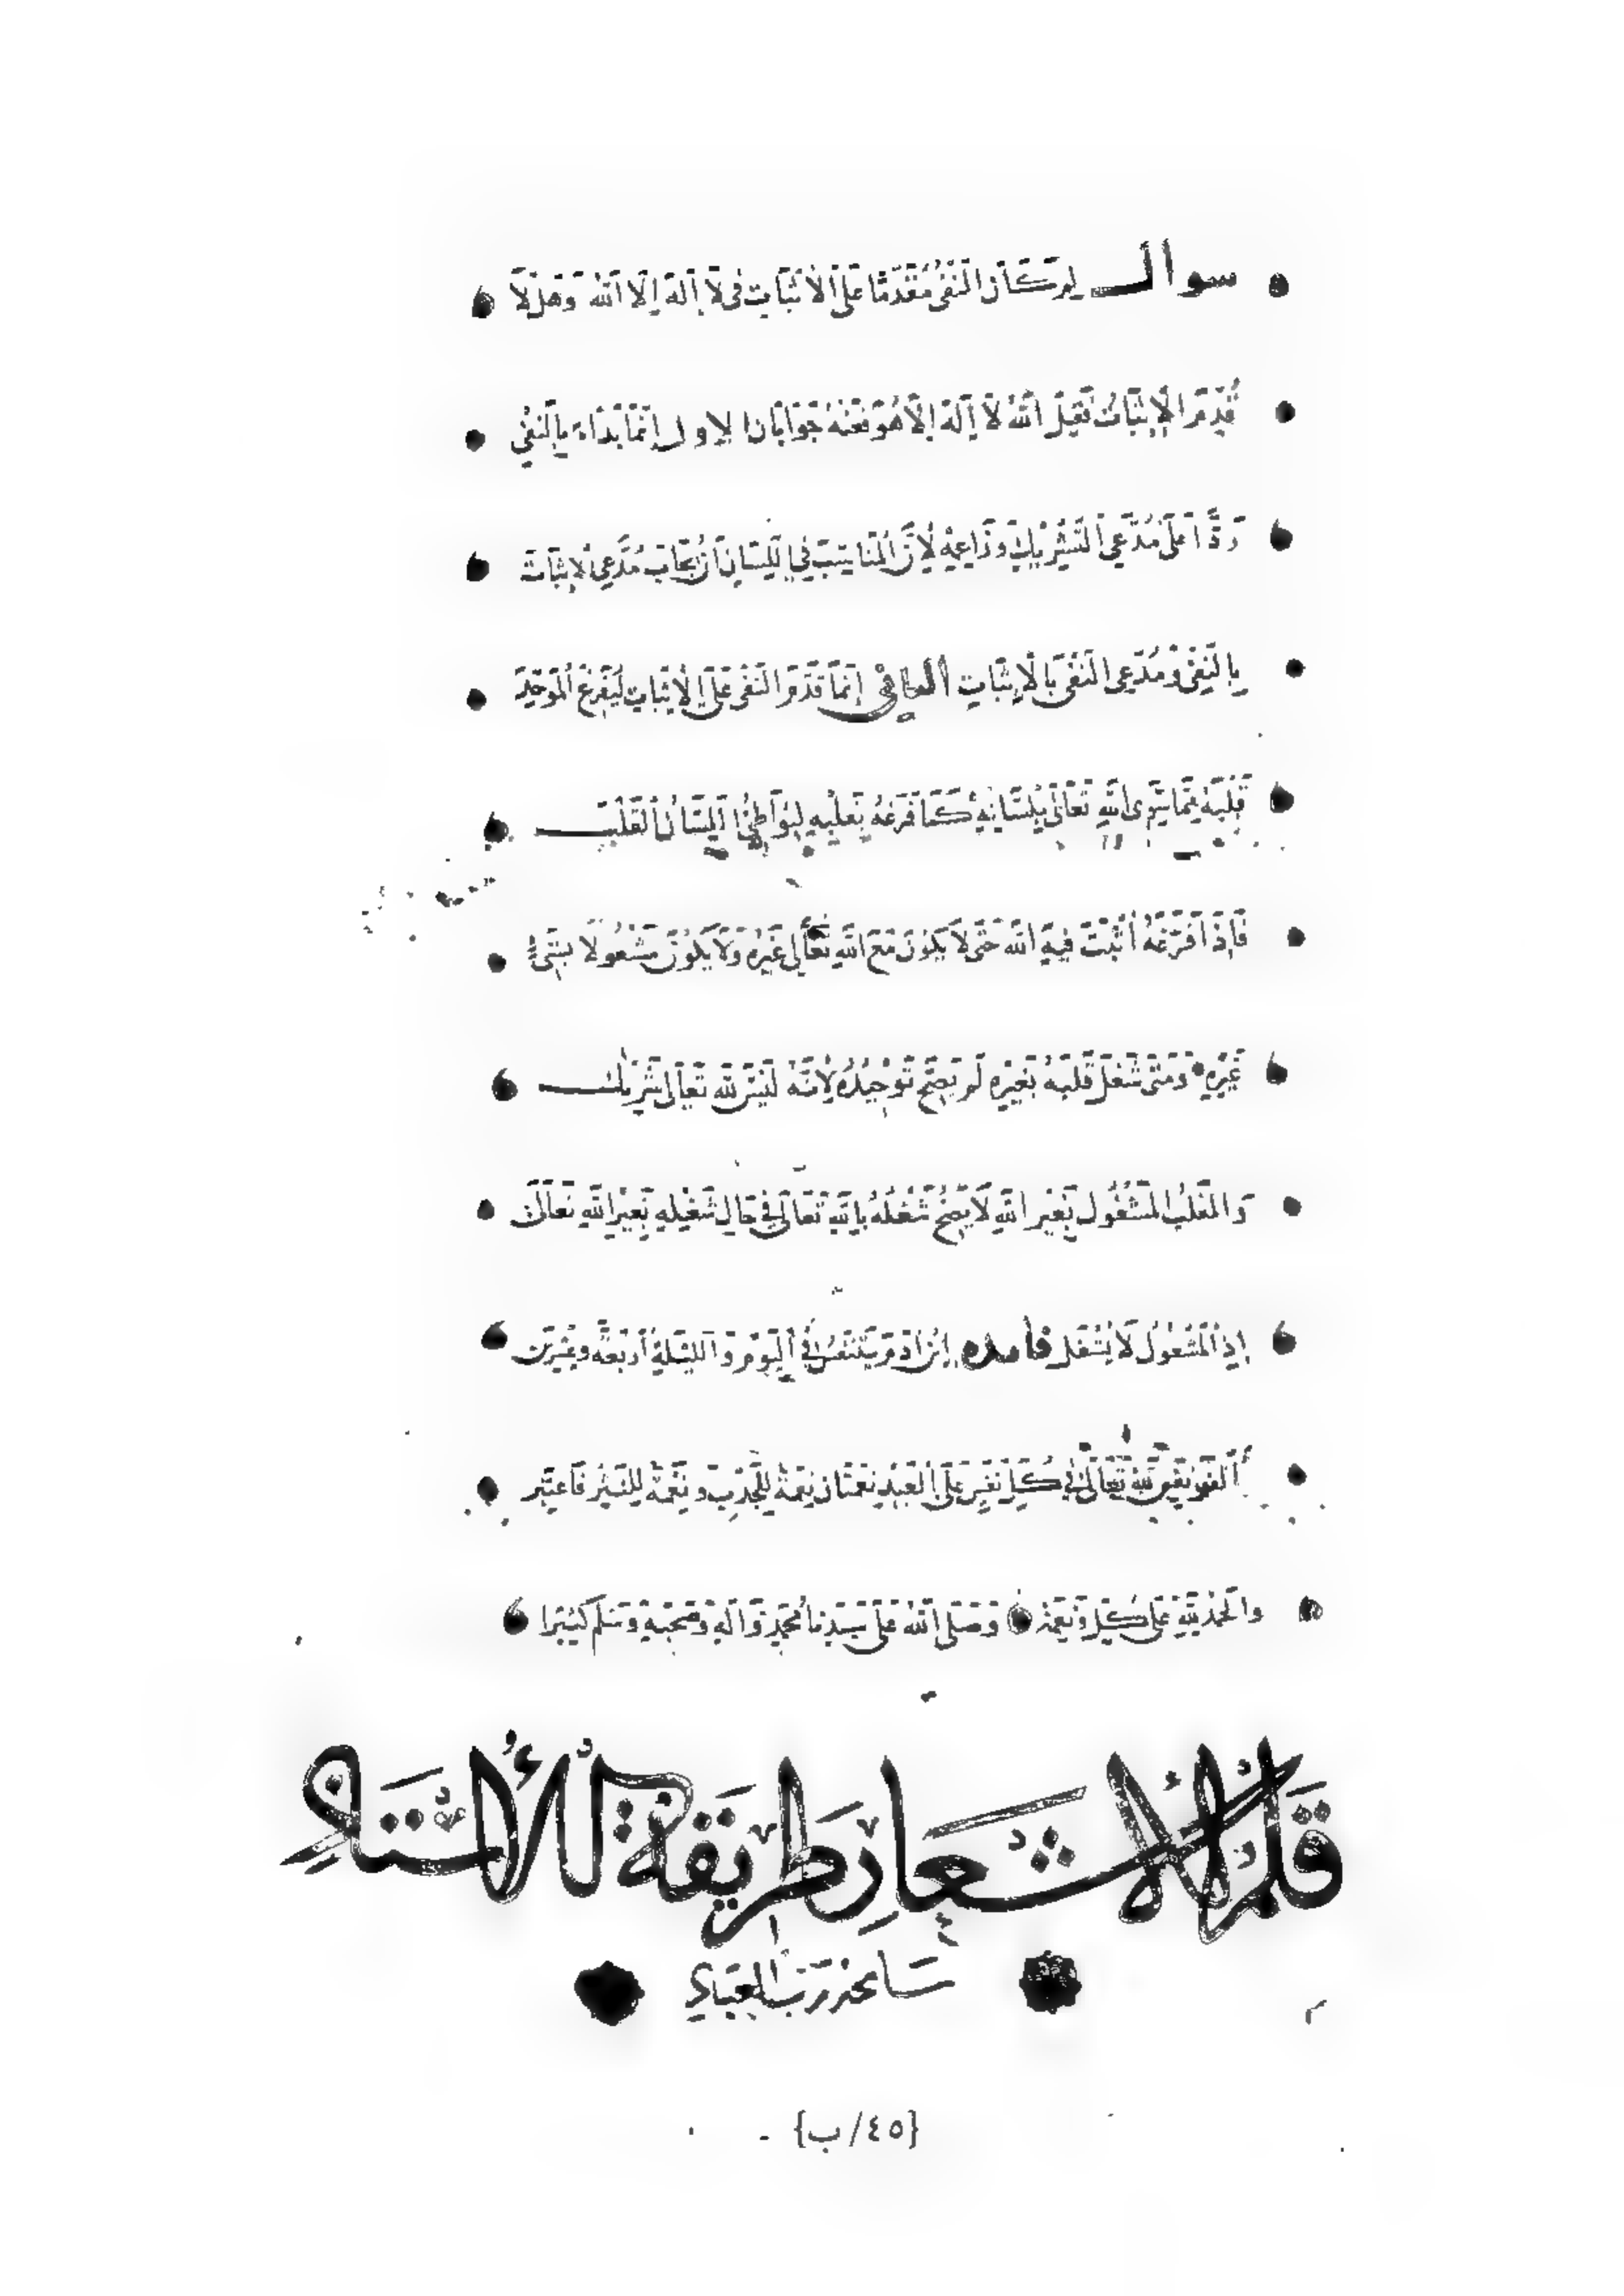 سوال لم كان النفي مقدما على الاثبات في لا اله الا الله وهل لا
قدم الاثبات فقيل الله لا اله الا هو فعنه جوابان الاول انما بداء بالنفي
ردا على مدعي التشريك وزاعمه لان المناسب في اللسان ان يجاب مدعي الاثبات
بالنفي ومدعي النفي بالاثبات الثاني انما قدم النفي على الاثبات ليفرغ الموحد
قلبه مما سوى الله تعالى بلسانه كما فرغه بقلبه ليواطئ اللسان القلب
فاذا فرغه اثبت فيه الله حتى لا يكون مع الله تعالى غيره ولا يكون مشغولا بشئ
غيره ومتى شغل قلبه بغيره لم يصح توحيده لانه ليس لله تعالى شريك
والقلب المشغول بغير الله لا يصح شغله بالله تعالى في حال شغله بغير الله تعالى
اذ المشغول لا يشغل فايده ابن ادم يتنفس في اليوم والليلة اربعة وعشرين
الف نفس لله تعالى في كل نفس على العبد نعمتان نعمة للجذب ونعمة للنشر فاعتبر
والحمد لله على كل نعمة وصلى الله على سيدنا محمد واله وصحبه وسلم كثيرا
قلم الاشعار طريقة الأستاذ
سامحه رب العباد
{٤٥/ب}